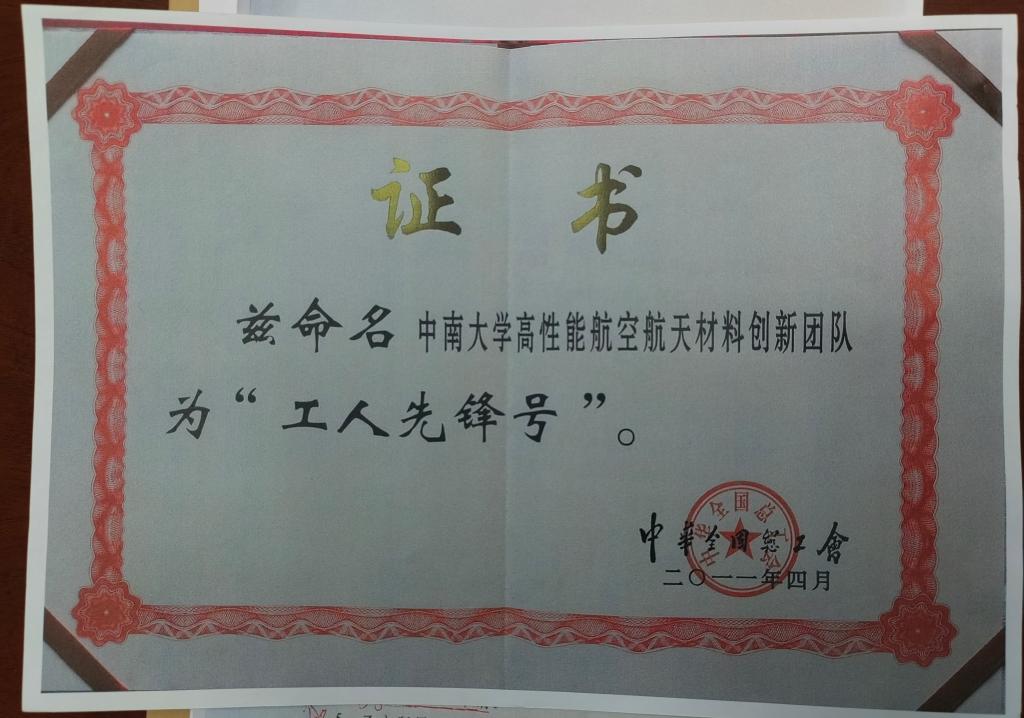 证 书
兹命名 中南大学高性能航空航天材料创新团队
为“工人先锋号”。
中华全国总工会
中華全国總工會
二〇一一年四月